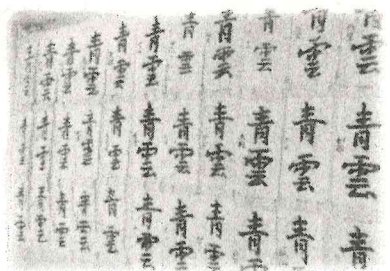 青雲青雲青
青雲青雲青
青雲青雲青雲
青雲青雲青雲
青雲青雲青雲
青雲青雲青雲
青雲青雲青雲
青雲青雲青雲
青雲青雲青雲
青雲青雲青雲
青雲青雲青雲